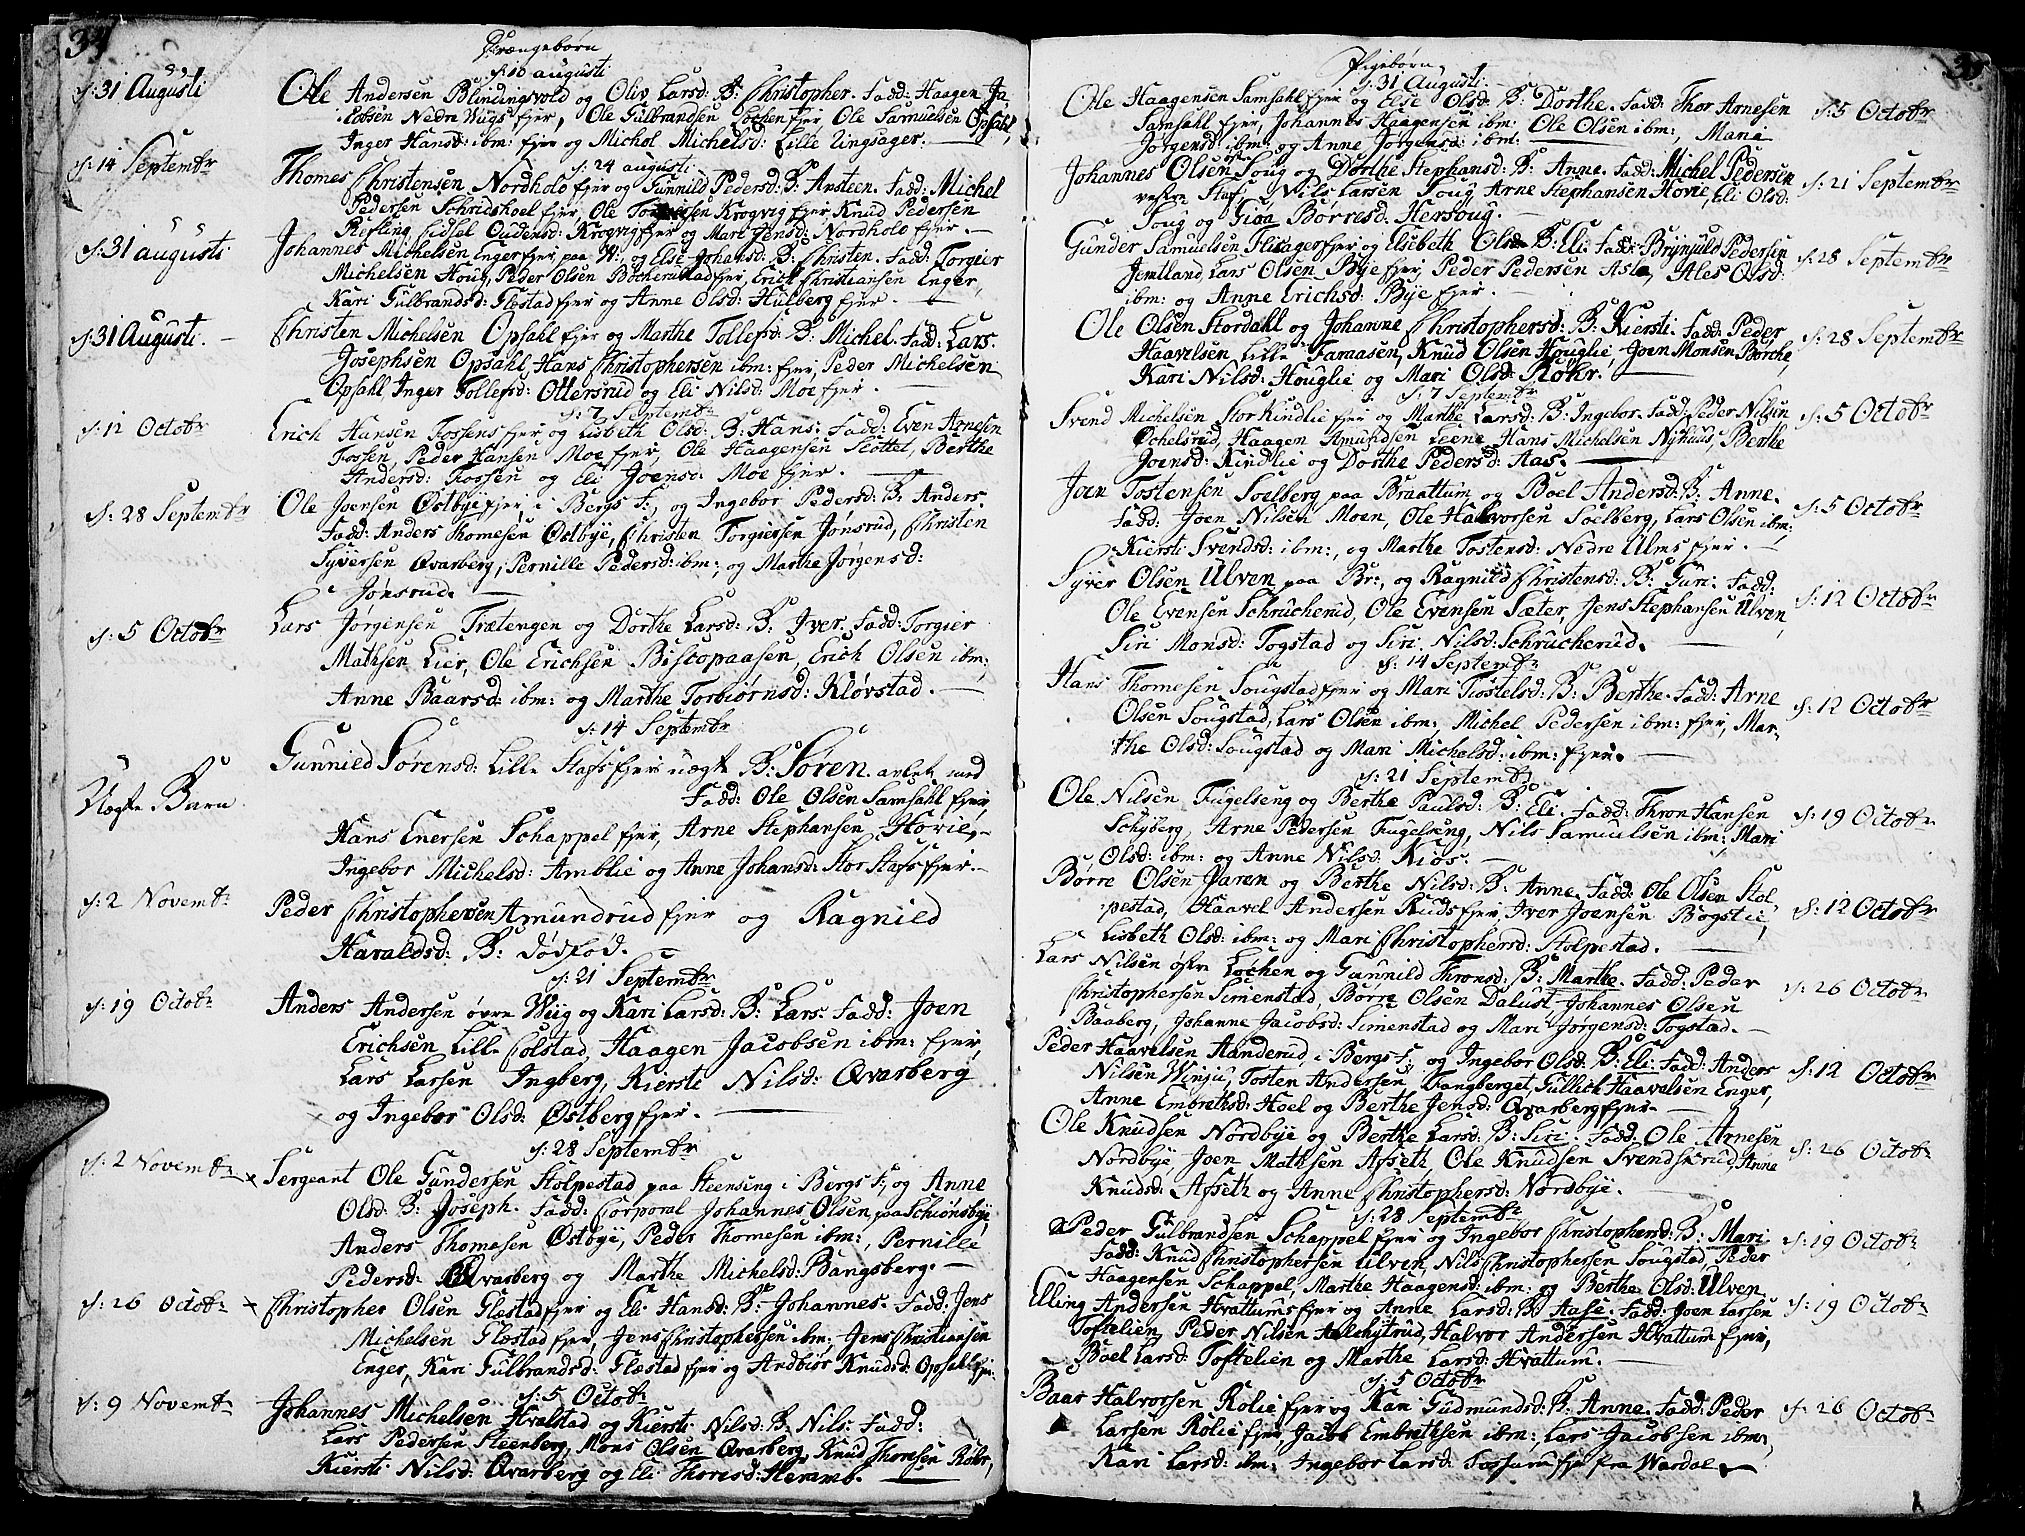 34
Drængebørn
d: 10 augusti
d: 31 Augusti
Ole Andersen Blindingsvold og Oliv Larsd: B: Christopher. Fadd: Haagen Ja-
cobsen Nedre Wiigs fjer, Ole Gulbrandsen Løchen fjer Ole Samuelsen Opsahl,
Inger Hansd: ibm: fjer og Michel Michelsd: Lille Ringsager.
d: 24 augusti
d: 14 Septembr
Thomes Christensen Nordholo fjer og Gunnild Pedersd: B: Ansteen. Fadd: Michel
Pedersen Schridshoel fjer, Ole Krogvig fjer, Knud Pedersen
Kiefling, Sidsel Oudensd: Krogvig fjer og Mari Jensd: Nordholo fjer.
d: 31 augusti
Johannes Michelsen Enger fjer paa W:, og Else Johansd: B: Christen. Fadd: Torgier
Michelsen Houg, Peder Olsen Bocherustad fjer, Erich Christiansen Enger,
Kari Gulbrandsd: Glæstad fjer og Anne Olsd: Hulberg fjer.
d: 31 Augusti.
Christen Michelsen Opsahl fjer og Marthe Tollefsd: B: Michel. Fadd: Lars
Josephsen Opsahl, Hans Christophersen ibm: fjer, Peder Michelsen
Opsahl, Inger Tollefsd: Ottersrud og Eli Nilsd: Moe fjer.
d: 7 Septembr
d: 12 Octobr
Erich Hansen Fossens fjer og Lisbeth Olsd: B: Hans. Fadd: Even Arnesen
Fossen, Peder Hansen Moe fjer, Ole Haagensen Slottet, Berthe
Andersd: Fossen og Eli Joensd: Moe fjer.
d: 28 Septembr
Ole Joensen Østbye fjer i Bergs F:, og Ingebor Pedersd: B: Anders.
Fadd: Anders Thomesen Østbye, Christen Torgiersen Jønsrud, Christen
Syversen Qvarberg, Pernille Pedersd: ibm:, og Marthe Jørgensd:
Jønsrud.
d: 5 Octobr
Lars Jørgensen Trætengen og Dorthe Larsd: B: Iver. Fadd: Torgier
Mathsen Lier, Ole Erichsen Biscopaasen, Erich Olsen ibm:,
Anne Baarsd: ibm: og Marthe Torbiørnsd: Kløvstad.
d: 14 Septembr
Uægte Barn
Gunnild Sørensd: Lille Stafs fjer uægte B: Søren. avlet med
Fadd: Ole Olsen Samsahl fjer,
Hans Enersen Schappel fjer, Arne Stephansen Hovie,
Ingebor Michelsd: Amblie og Anne Johansd: Stor Stafs fjer.
d: 2 Novembr
Peder Christophersen Amundrud fjer og Ragnild
Haraldsd: B: dødfød.
d: 21 Septembr
d: 19 Octobr
Anders Andersen øvre Wiig og Kari Larsd: B: Lars. Fadd: Joen
Erichsen Lille Colstad, Haagen Jacobsen ibm: fjer,
Lars Larsen Ingberg, Kiersti Nilsd: Qvarberg
og Ingebor Olsd: Østberg fjer.
d: 28 Septembr
d: 2 Novembr
Sergeant Ole Gundersen Stolpestad paa Steenseng i Bergs F:, og Anne
Olsd: B: Joseph. Fadd: Corporal Johannes Olsen paa Schiønsbye,
Anders Thomesen Østbye, Peder Thomesen ibm:, Pernille
Pedersd: Qvarberg og Marthe Michelsd: Bangsberg.
d: 26 Octobr
Christopher Olsen Glæstad fjer og Eli Hansd: B: Johannes. Fadd: Jens
Michelsen Glæstad fjer, Jens Christophersen ibm:, Jens Christiansen
Enger, Kari Gulbrandsd: Glæstad fjer og Andbiør Knudsd: Opsahl fjer.
d: 5 Octobr
d: 9 Novembr
Johannes Michelsen Hvalstad og Kiersti Nilsd: B: Nils. Fadd:
Lars Pedersen Steenberg, Mons Olsen Qvarberg, Knud Thomesen Røhr,
Kiersti Nilsd: Qvarberg og Eli Thoresd: Heramb.
Pigebørn
d: 31 Augusti
Ole Haagensen Samsahl fjer og Else Olsd: B: Dorthe. Fadd: Thor Arnesen
Samsahl fjer, Johannes Haagensen ibm: Ole Olsen ibm:, Mari
Jørgensd: ibm: og Anne Jørgensd: ibm:
d: 5 Octobr
Johannes Olsen Soug og Dorthe Stephansd: B: Anne. Fadd: Michel Pedersen
vestre Staf, Nils Larsen Soug, Arne Stephansen Hovie, Eli Olsd:
Soug og Giøa Børresd: Hersoug.
d: 21 Septembr
Gunder Samuelsen Flisager fjer og Elsebeth Olsd: B: Eli. Fadd: Brynjuld Pedersen
Jemtland, Lars Olsen Bye fjer, Peder Pedersen Asla, Ales Olsd:
ibm: og Anne Erichsd: Bye fjer.
d: 28 Septembr
Ole Olsen Stordahl og Johanne Christophersd: B: Kiersti. Fadd: Peder
Haavelsen Lille Faraasen, Knud Olsen Houglie Joen Monsen Børche,
Kari Nilsd: Houglie og Mari Olsd: Røhr.
d: 28 Septembr
d: 7 Septembr
Svend Michelsen Stor Kindlie fjer og Marthe Larsd: B: Ingebor. Fadd: Peder Nilsen
Øchelsrud, Haagen Amundsen Leene, Hans Michelsen Nyhuus, Berthe
Joensd: Kindlie og Dorthe Pedersd: Aas.
d: 5 Octobr
Joen Tostensen Soelberg paa Braattum og Boel Andersd: B: Anne.
Fadd: Joen Nilsen Moen, Ole Halvorsen Soelberg, Lars Olsen ibm:,
Kiersti Svendsd: ibm:, og Marthe Tostensd: Nedre Ulms fjer.
d: 5 Octobr
Syver Olsen Ulven paa Br:, og Ragnild Christensd: B: Guri. Fadd:
Ole Evensen Schrucherud, Ole Evensen Sæter, Jens Stephansen Ulven,
Siri Monsd: Togstad og Siri Nilsd: Schrucherud.
d: 12 Octobr
d: 14 Septembr
Hans Thomesen Sougstad fjer og Mari Trostelsd: B: Berthe. Fadd: Arne
Olsen Sougstad, Lars Olsen ibm:, Michel Pedersen ibm: fjer, Mar-
the Olsd: Sougstad og Mari Michelsd: ibm: fjer.
d: 12 Octobr
d: 21 Septembr
Ole Nilsen Fugelseng og Berthe Paulsd: B: Eli. Fadd: Thron Hansen
Schyberg, Arne Pedersen Fugelseng, Nils Samuelsen ibm:, Mari
Olsd: ibm: og Anne Nilsd: Kios.
d: 19 Octobr
Børre Olsen Paren og Berthe Nilsd: B: Anne. Fadd: Ole Olsen Stol-
pestad, Haavel Andersen Ruds fjer, Iver Joensen Bøgslie,
Lisbeth Olsd: ibm: og Mari Christophersd: Stolpestad.
d: 12 Octobr
Lars Nilsen østre Løchen og Gunnild Thronsd: B: Marthe. Fadd: Peder
Christophersen Simenstad, Børre Olsen Dalust, Johannes Olsen
Baaberg, Johanne Jacobsd: Simenstad og Mari Jørgensd: Togstad.
d: 26 Octobr
Peder Haavelsen Aanderud i Bergs F: og Ingebor Olsd: B: Eli. Fadd: Anders
Nilsen Winju, Tosten Andersen Fangberget, Gullich Haavelsen Enger,
Anne Embrethsd: Hoel og Berthe Jensd: Qvarberg fjer.
d: 12 Octobr
Ole Knudsen Nordbye og Berthe Larsd: B: Siri. Fadd: Ole Arnesen
Nordbye, Joen Mathsen Afseth, Ole Knudsen Svendsrud, Anne
Knudsd: Afseth og Anne Christophersd: Nordbye.
d: 26 Octobr
d: 28 Septembr
Peder Gulbrandsen Schappel fjer og Ingebor Christophersd: B: Mari.
Fadd: Knud Christophersen Ulven, Nils Christophersen Sougstad, Peder
Haagensen Schappel, Marthe Haagensd: ibm: og Berthe Olsd: Ulven.
d: 19 Octobr
Elling Andersen Hvattums fjer og Anne Larsd: B: Aase. Fadd: Joen Larsen
Toftelien, Peder Nilsen Aalchytrud, Halvor Andersen Hvattum fjer,
Boel Larsd: Toftelien og Marthe Larsd: Hvattum.
d: 19 Octobr
d: 5 Octobr
Baar Halvorsen Rolie fjer og Kari Gudmundsd: B: Anne. Fadd: Peder
Larsen Rolie fjer, Jacob Embrethsen ibm:, Lars Jacobsen ibm:,
Kari Larsd: ibm: Ingebor Larsd: Fossum fjer fra Wardal.
d: 26 Octobr